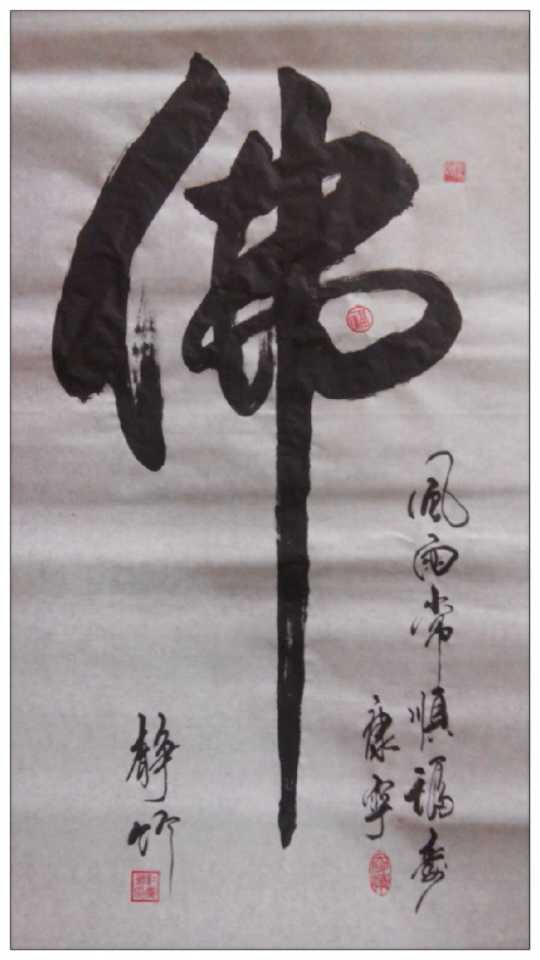 佛
風雨常順福壽
康寧
静竹